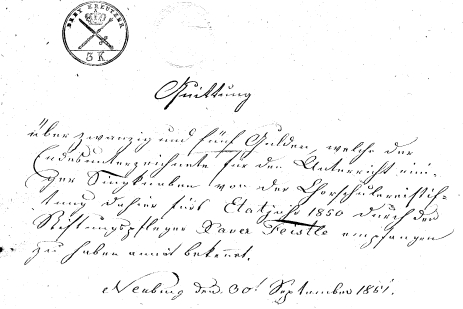 DREY KREUTZER
3 K
Quittung
über zwanzig und fünf Gulden, welche der
Endesunterzeichnete für den Unterricht eini-
ger Singknaben von der
tung dahier fürs Etatjahr 1850 durch den
Stiftungspfleger Xaver Feistle empfangen
zu haben anmit bekennt.
Neuburg den 30t September 1851.